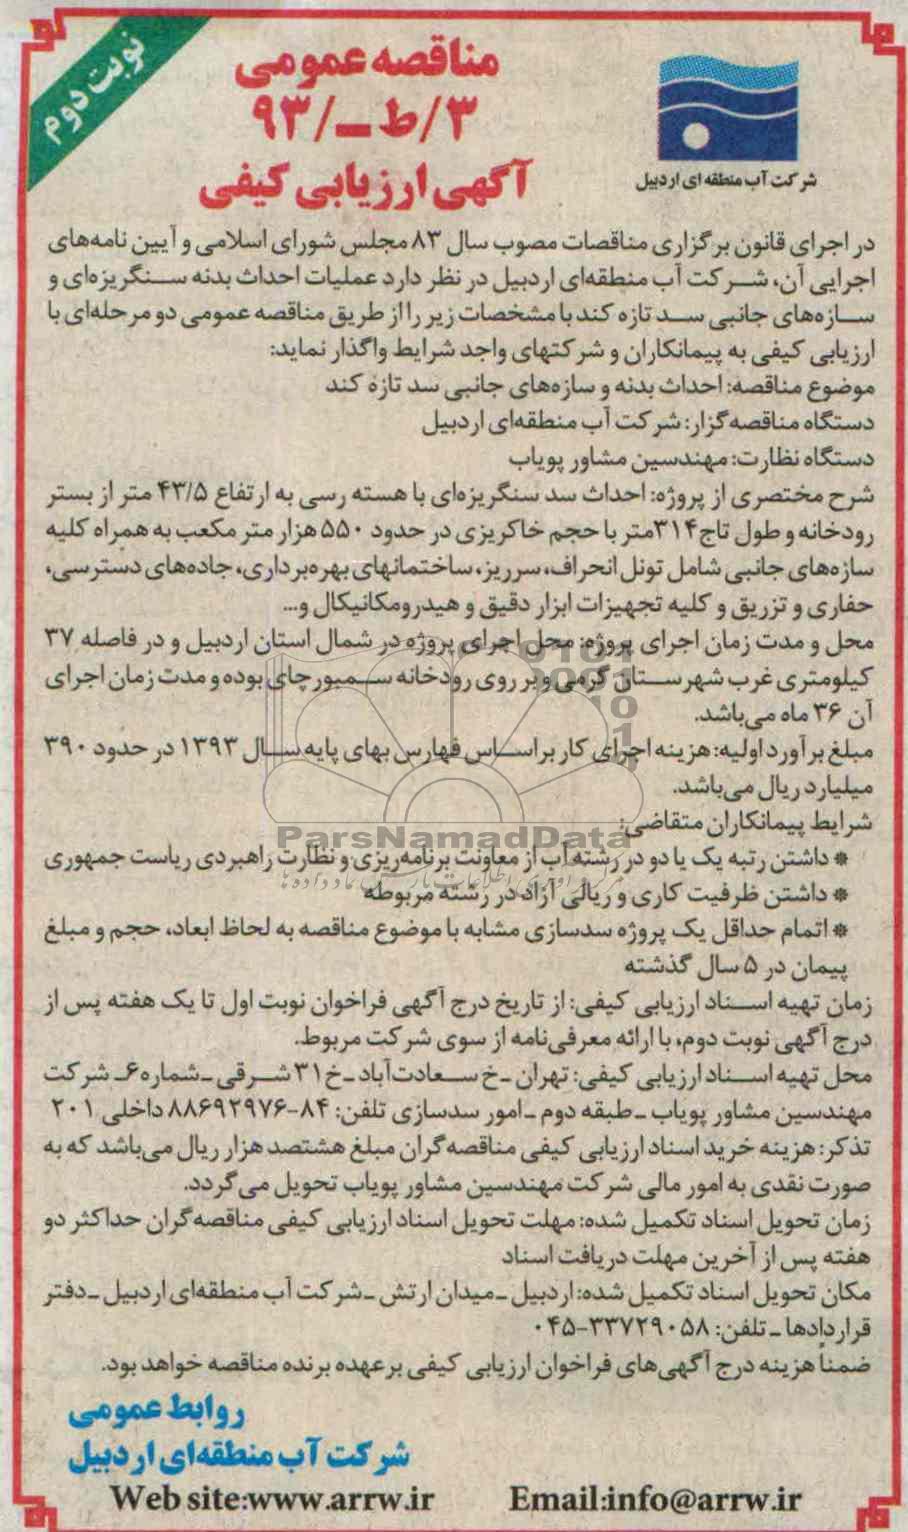 نوبت دوم
مناقصه عمومی
۳/ط-/۹۳
آگهی ارزیابی کیفی
شرکت آب منطقه ای اردبیل
در اجرای قانون برگزاری مناقصات مصوب سال ۸۳ مجلس شورای اسلامی و آیین نامه‌های
اجرایی آن، شرکت آب منطقه‌ای اردبیل در نظر دارد عملیات احداث بدنه سنگریزه‌ای و
سازه‌های جانبی سد تازه کند با مشخصات زیر را از طریق مناقصه عمومی دو مرحله‌ای با
ارزیابی کیفی به پیمانکاران و شرکتهای واجد شرایط واگذار نماید:
موضوع مناقصه: احداث بدنه و سازه‌های جانبی سد تازه کند
دستگاه مناقصه‌گزار: شرکت آب منطقه‌ای اردبیل
دستگاه نظارت: مهندسین مشاور پویاب
شرح مختصری از پروژه: احداث سد سنگریزه‌ای با هسته رسی به ارتفاع ۴۳/۵ متر از بستر
رودخانه و طول تاج ۳۱۴متر با حجم خاکریزی در حدود ۵۵۰ هزار متر مکعب به همراه کلیه
سازه‌های جانبی شامل تونل انحراف، سرریز، ساختمانهای بهره‌برداری، جاده‌های دسترسی،
حفاری و تزریق و کلیه تجهیزات ابزار دقیق و هیدرومکانیکال و...
محل و مدت زمان اجرای پروژه: محل اجرای پروژه در شمال استان اردبیل و در فاصله ۳۷
کیلومتری غرب شهرستان گرمی و بر روی رودخانه سمبورچای بوده و مدت زمان اجرای
آن ۳۶ ماه می‌باشد.
مبلغ برآورد اولیه: هزینه اجرای کار بر اساس فهارس بهای پایه سال ۱۳۹۳ در حدود ۳۹۰
میلیارد ریال می‌باشد.
شرایط پیمانکاران متقاضی:
ParsNamadData
* داشتن رتبه یک یا دو در رشته آب از معاونت برنامه‌ریزی و نظارت راهبردی ریاست جمهوری
* داشتن ظرفیت کاری و ریالی آزاد در رشته مربوطه
* اتمام حداقل یک پروژه سدسازی مشابه با موضوع مناقصه به لحاظ ابعاد، حجم و مبلغ
پیمان در ۵ سال گذشته
زمان تهیه اسناد ارزیابی کیفی: از تاریخ درج آگهی فراخوان نوبت اول تا یک هفته پس از
درج آگهی نوبت دوم، با ارائه معرفی‌نامه از سوی شرکت مربوط.
محل تهیه اسناد ارزیابی کیفی: تهران -خ سعادت‌آباد -خ ۳۱ شرقی -شماره ۶- شرکت
مهندسین مشاور پویاب -طبقه دوم -امور سدسازی تلفن: ۸۴-۸۸۶۹۲۹۷۶ داخلی ۲۰۱
تذکر: هزینه خرید اسناد ارزیابی کیفی مناقصه‌گران مبلغ هشتصد هزار ریال می‌باشد که به
صورت نقدی به امور مالی شرکت مهندسین مشاور پویاب تحویل می‌گردد.
زمان تحویل اسناد تکمیل شده: مهلت تحویل اسناد ارزیابی کیفی مناقصه‌گران حداکثر دو
هفته پس از آخرین مهلت دریافت اسناد
مکان تحویل اسناد تکمیل شده: اردبیل -میدان ارتش -شرکت آب منطقه‌ای اردبیل -دفتر
قراردادها - تلفن: ۳۳۷۲۹۰۵۸-۰۴۵
ضمناً هزینه درج آگهی‌های فراخوان ارزیابی کیفی بر عهده برنده مناقصه خواهد بود.
روابط عمومی
شرکت آب منطقه‌ای اردبیل
Web site:www.arrw.ir Email:info@arrw.ir